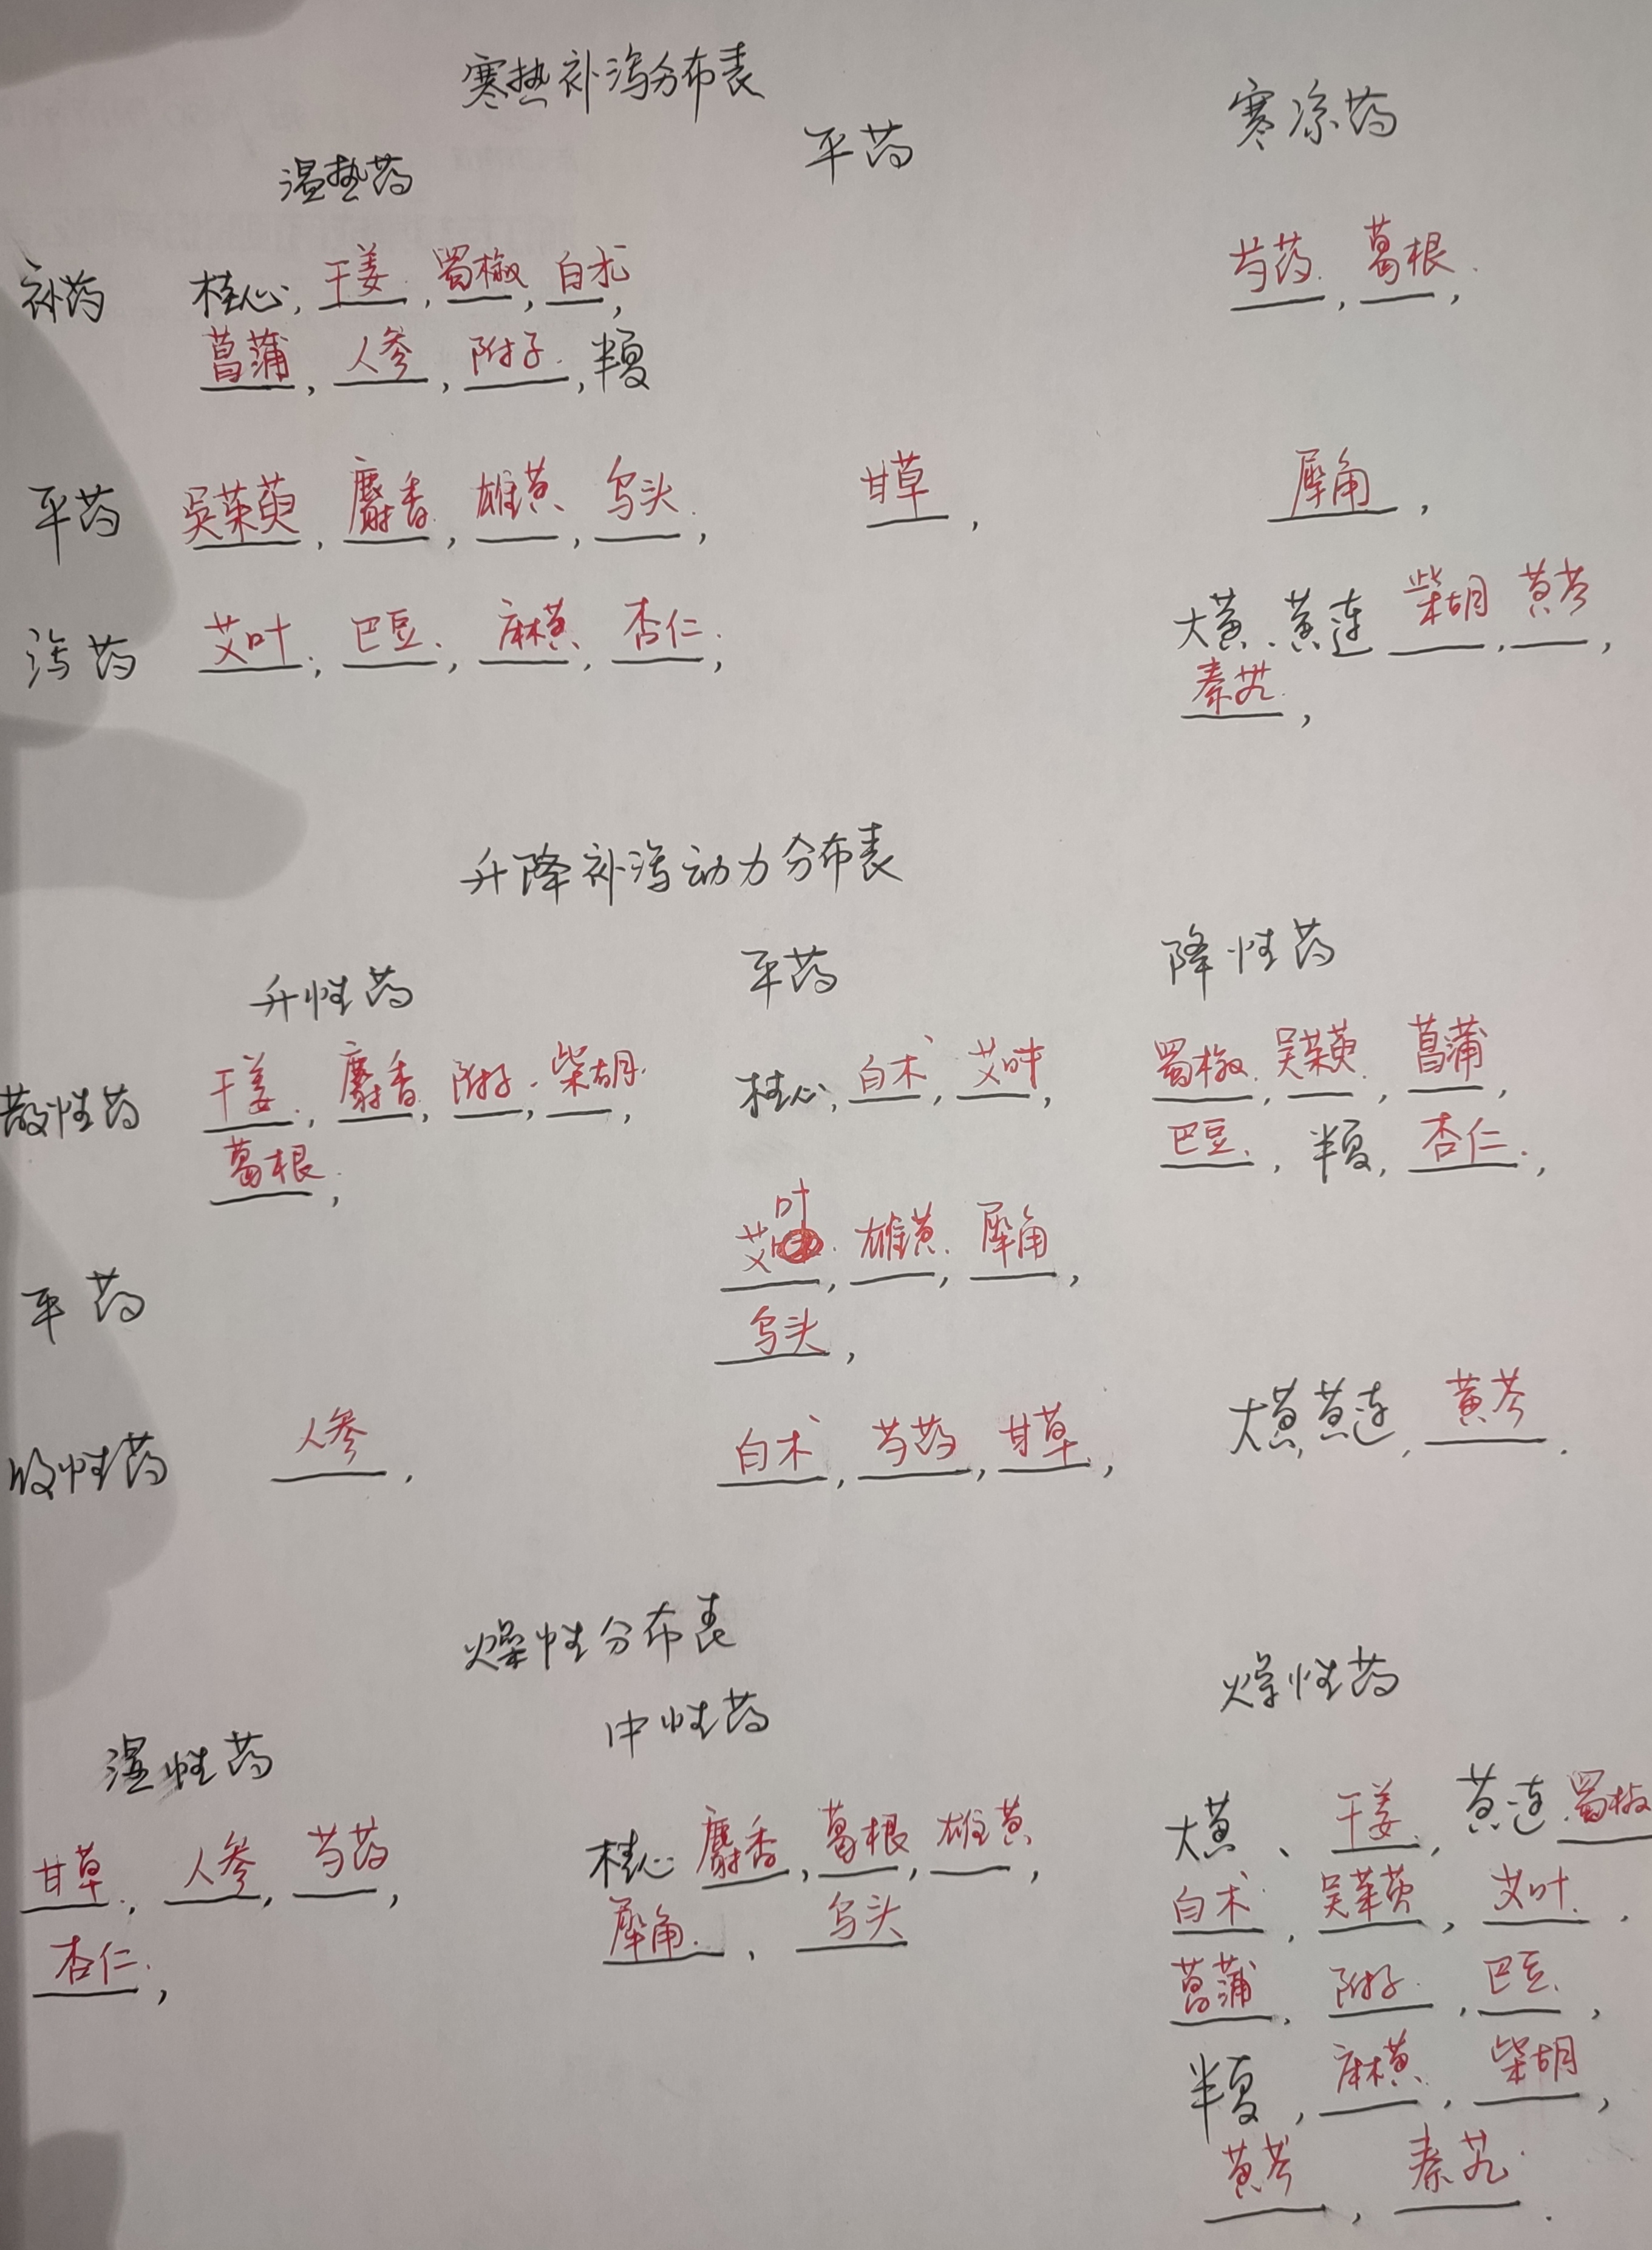 寒热补泻分布表
温热药 平药 寒凉药
补药 桂心, 干姜, 蜀椒, 白术, 芍药, 葛根,
菖蒲, 人参, 附子, 半夏
平药 吴茱萸, 麝香, 雄黄, 乌头, 甘草, 犀角,
泻药 艾叶, 巴豆, 麻黄, 杏仁, 大黄、黄连 柴胡, 黄芩,
秦艽,
升降补泻动力分布表
升性药 平药 降性药
散性药 干姜, 麝香, 附子, 柴胡, 桂心, 白术, 艾叶, 蜀椒, 吴茱萸, 菖蒲,
葛根, 巴豆, 半夏, 杏仁,
平药 艾叶, 雄黄, 犀角,
乌头,
收性药 人参, 白术, 芍药, 甘草, 大黄, 黄连, 黄芩.
燥性分布表
湿性药 中性药 燥性药
甘草, 人参, 芍药, 桂心 麝香, 葛根, 雄黄, 大黄、干姜, 黄连 蜀椒
杏仁, 犀角, 乌头 白术, 吴茱萸, 艾叶,
菖蒲, 附子, 巴豆,
半夏, 麻黄, 柴胡,
黄芩, 秦艽.